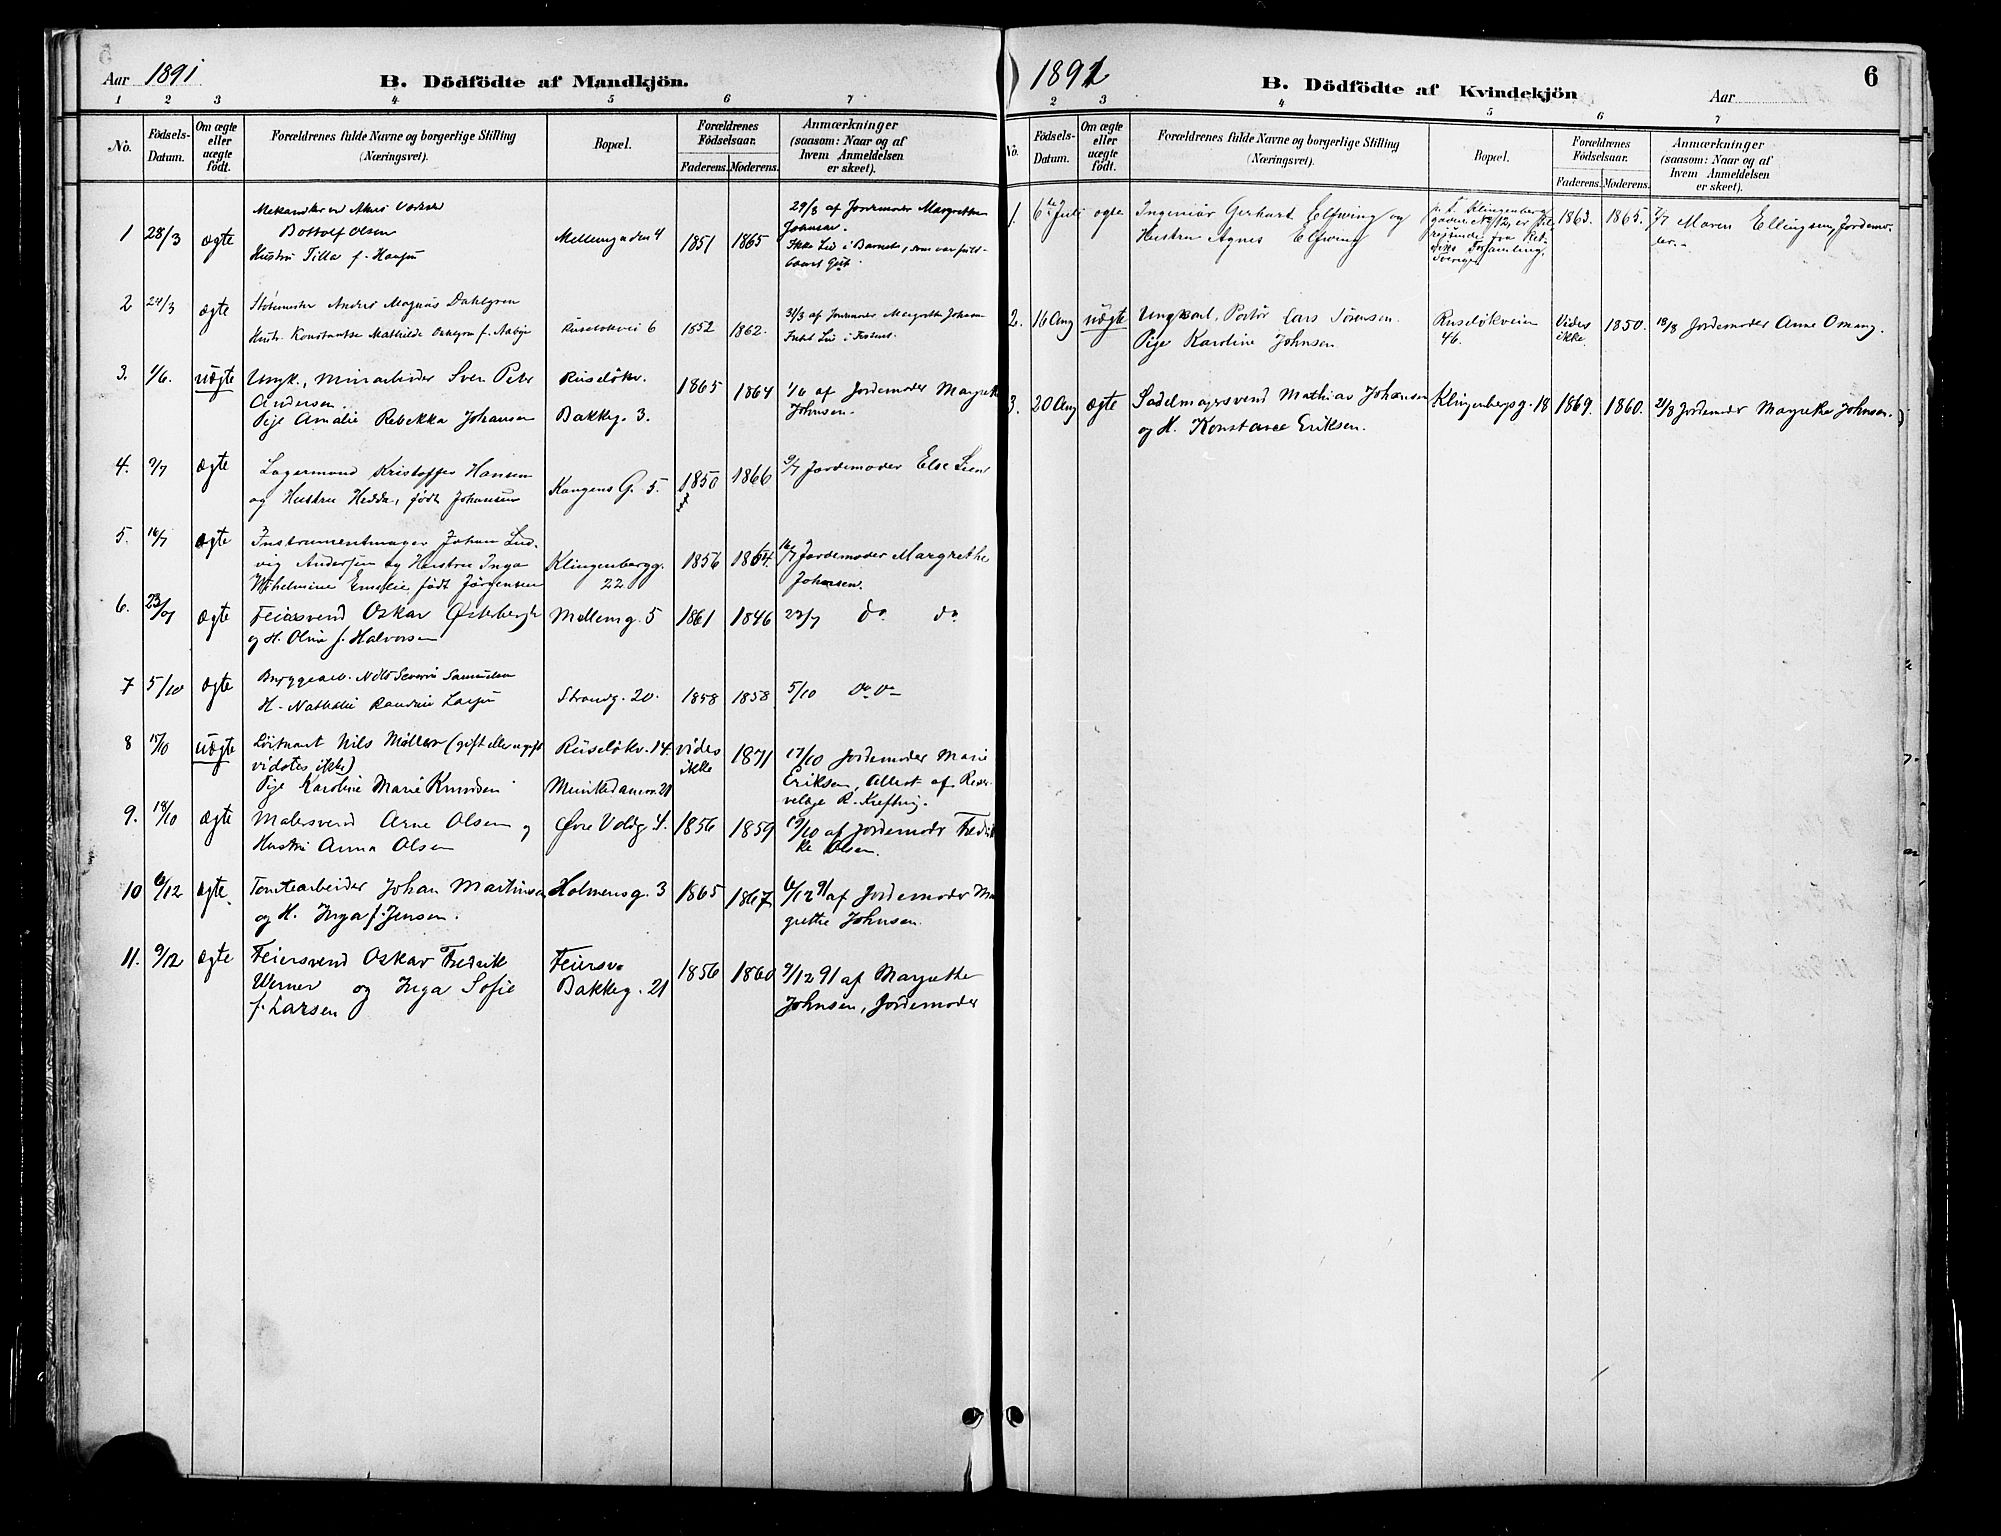 Aar 1891
B. Dödfödte af Mandkjön.
1 2 3 4 5 6 7
No.
Födsels-Datum.
Om ægte eller uægte födt.
Forældrenes fulde Navne og borgerlige Stilling (Næringsvei).
Bopæl.
Forældrenes Födselsaar.
Faderens. Moderens.
Anmærkninger (saasom: Naar og af hvem Anmeldelsen er skeet).
1 28/3 ægte
Bottolf Olsen
Hustru Tilla f. Hansen
Mellemgaden 4 1851 1865
29/3 af Jordmoder Margrethe
Johnsen.
Ikke Liv i Barnet, som var fuld-
baaret Gut.
2 24/3 ægte
Anders Magnus Dahlgren
Hustr. Konstantse Mathilde Dahlgren f. Aabye
Ruseløkvei 6 1852 1862.
31/3 af Jordmoder Margrethe Johnsen
Intet Liv i Fosteret.
3. 1/6. uægte
Ungk., Minearbeider Sven Peter
Andersen.
Pige Amalie Rebekka Johansen
Ruseløkv.
Bakkeg. 3.
1865 1864
1/6 af Jordemoder Margrethe
Johnsen.
4. 9/7 ægte
Lagermand Kristoffer Hansen
og Hustru Hedda, født Johansen
Kongens G. 5. 1850 1866
9/7 Jordemoder Else Lien
5. 16/7 ægte
Instrumentmager Johan Lud-
vig Andersen og Hustru Inga
Wilhelmine Emelie, født Jørgensen
Klingenbergg.
22
1856 1864.
16/7 Jordemoder Margrethe
Johansen.
6. 23/07 ægte
Feiersvend Oskar Østerbergh
og H. Oline f. Halvorsen
Mellemg. 5 1861 1846 23/7 do do
7 5/10 ægte
Bryggearb. Nils Severin Samuelsen
H. Nathalie Randine Larsen
Strandg. 20. 1858 1858 5/10 Do Do
8 15/10 uægte
Løitnant Nils Møller (gift eller ugift
vidstes ikke)
Pige Karoline Marie Knudsen
Ruseløkv. 14.
Munkedamsv. 21
vides
ikke
1871
17/10 Jordemoder Marie
Eriksen, Attest af Reser-
velæge R. Kreftvig.
9. 18/10 ægte
Malersvend Arne Olsen og
Hustru Anna Olsen
Øvre Voldg 4. 1856 1859
19/10 af Jordemodr Fredrik
ke Olsen.
10 6/12 ægte.
Tomtearbeider Johan Martinsen
og H. Inga f. Jensen.
Holmensg. 3 1865 1867
6/12 91 af Jordemoder Ma
grethe Johnsen.
11. 9/12 ægte
Feiersvend Oskar Fredrik
Werner og Inga Sofie
f. Larsen
Feiersv.
Bakkeg. 21
1856 1860
9/12 91 af Margrethe
Johnsen, Jordemoder
1891
B. Dödfödte af Kvindekjön
Aar
6
2 3 4 5 6 7
No.
Födsels-Datum.
Om ægte eller uægte födt.
Forældrenes fulde Navne og borgerlige Stilling (Næringsvei).
Bopæl.
Forældrenes Födselsaar.
Faderens. Moderens.
Anmærkninger (saasom: Naar og af hvem Anmeldelsen er skeet).
1. 6te Juli ægte
Ingeniør Gerhart Elfwing og
Hustru Agnes Elfwing
p. t. Klingenberg
gaden No 12, er til-
reisende fra
Forsamling,
Sverige
1863. 1865.
7/7 Maren Ellingsen, Jordemo-
der.
2. 16 Aug uægte
Ungkarl, Portør Lars Sørensen.
Pige Karoline Johnsen
Ruseløkveien
46.
Vides
ikke.
1850.
18/8 Jordemoder Anne Omang.
3. 20 Aug ægte
Sadelmagersvend Mathias Johansen
og H. Konstance Eriksen.
Klingenbergg. 18 1869. 1860.
21/8 Jordemoder Magrethe Johnsen.